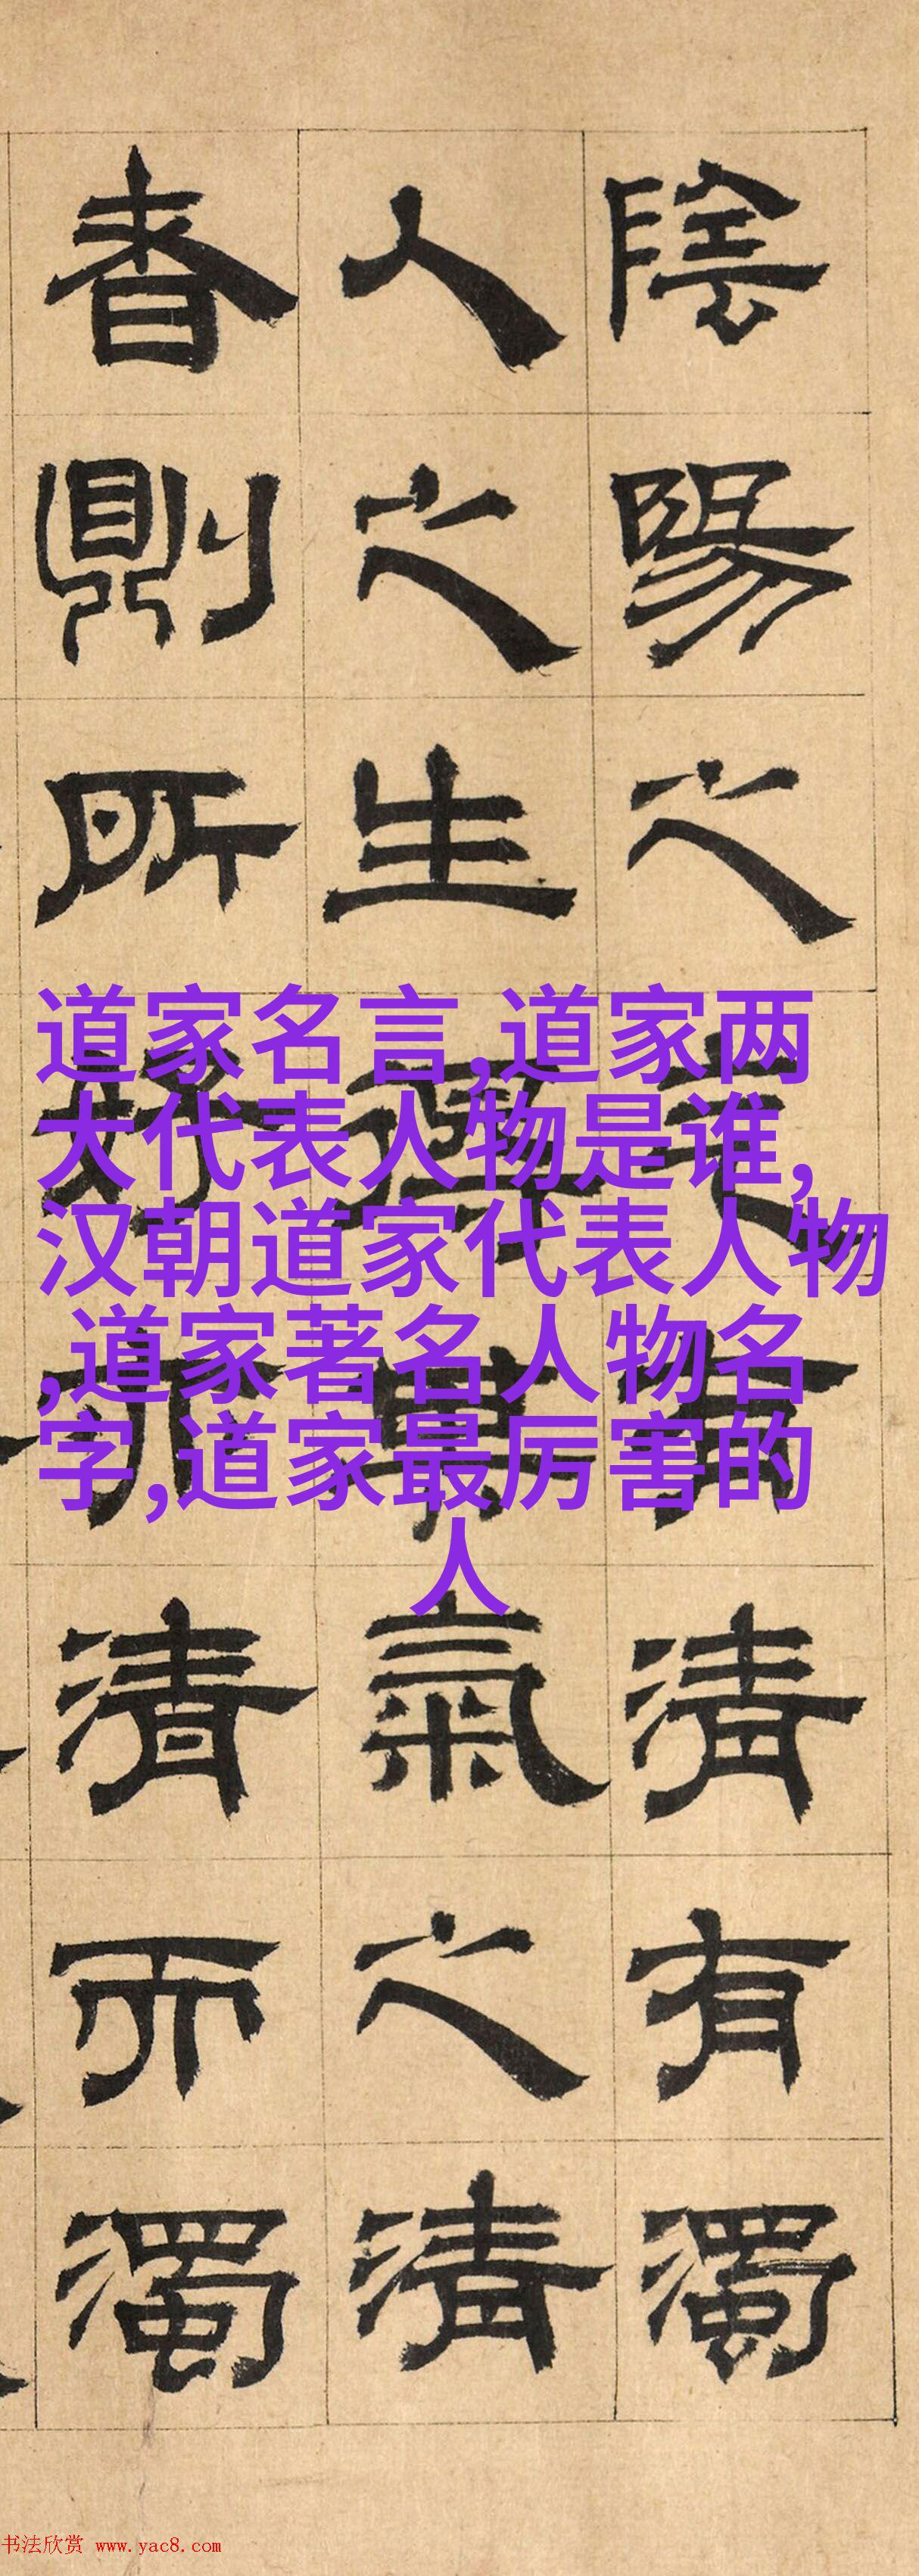 陰陽之有清有濁
人之生得氣之清
者則所好亦清而濁
道家名言,道家两
大代表人物是谁,
汉朝道家代表人物
,道家著名人物名
字,道家最厉害的
人
书法欣赏 www.yac8.com